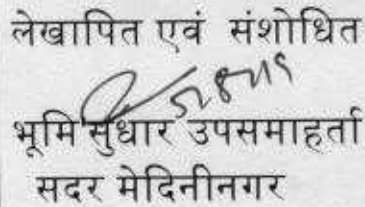 लेखापित एवं संशोधित
भूमि सुधार उपसमाहर्ता
सदर मेदिनीनगर